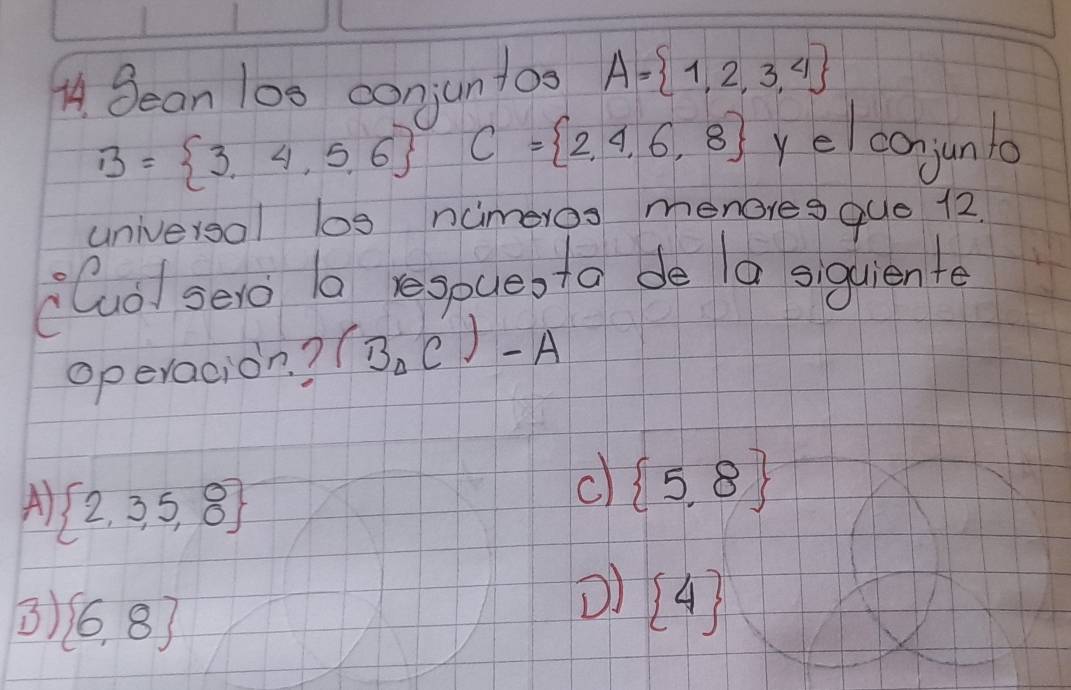 14. Sean los conjuntos A={1,2,3,4}
B = {3,4,5,6} C = {2,4,6,8} y el conjunto
universal los números menores que 12.
¿Cuál será la respuesta de la siguiente
operación.? (B△C) - A
A) {2,3,5,8}
C) {5,8}
B) {6,8}
D) {4}